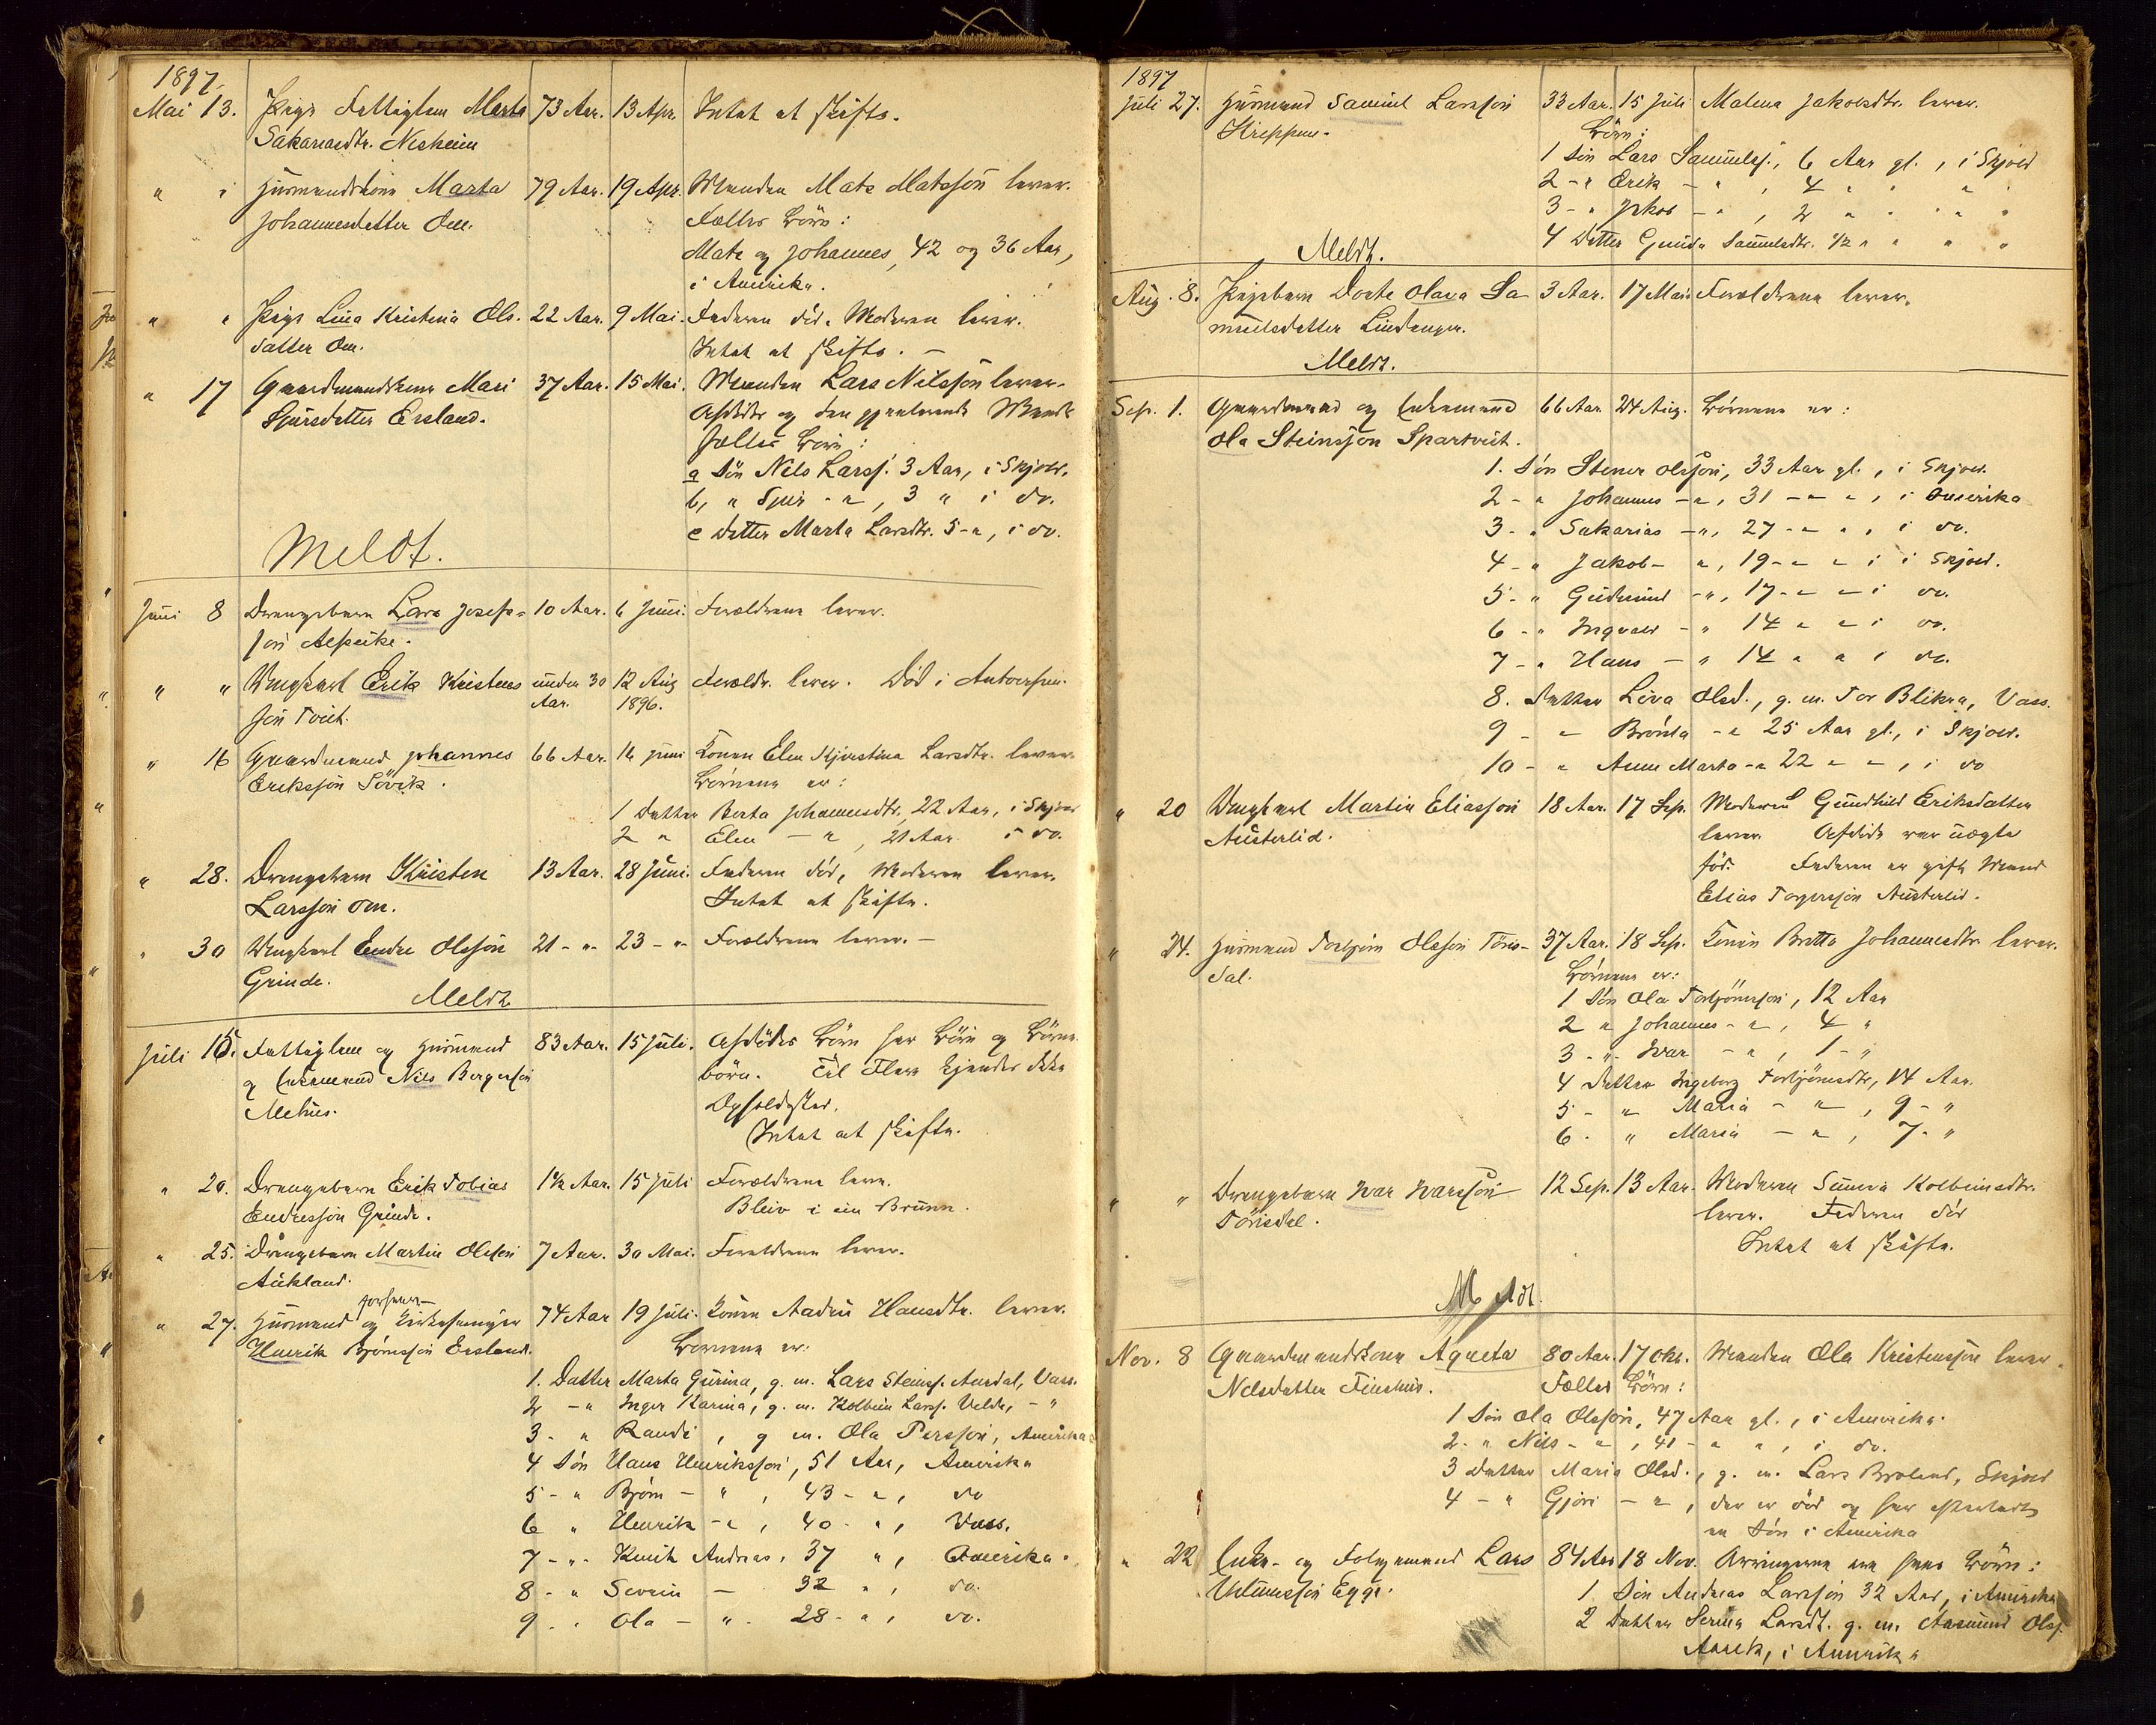 1897.
Mai 13. Pige Fattiglem Marta 73 Aar. 13 Apr. Intet at skifte.
Sakariasdtr. Nesheim
" " Husmandskone Marta 79 Aar. 19 Apr. Manden Mats Matsson lever.
Johannesdatter Øen. Fælles Børn:
Mats og Johannes, 42 og 36 Aar,
i Amerika.
" " Pige Lina Kristina Ols- 22 Aar. 9 Mai. Faderen død. Moderen lever.
datter Øen. Intet at skifte. —
" 17 Gaardmandskone Mari 37 Aar. 15 Mai. Manden Lars Nilsson lever.
Sjursdatter Ersland. Afdøde og den gjenlevende Mands
fælles Børn:
a Søn Nils Larss. 3 Aar, i Skjold.
b, " Sjur - " , 3 " i do.
c Datter Marta Larsdtr. 5 - ", i do.
Meldt.
Juni 8 Drengebarn Lars Josefs- 10 Aar. 6 Juni. Forældrene lever.
søn Alsaike.
" " Ungkarl Erik Kristens under 30 12 Aug Forældr. lever. Død i Antverpen.
søn Tveit. Aar. 1896.
" 16 Gaardmand Johannes 66 Aar. 16 Juni Konen Elen Kjerstina Larsdtr. lever.
Eriksson Søvik. Børnene er:
1 Datter Berta Johannesdtr., 22 Aar, i Skjold
2 " Elen - " , 21 Aar i do.
" 28. Drengebarn Kristen 13 Aar. 28 Juni. Faderen død, Moderen lever.
Larsson Øen. Intet at skifte.
" 30 Ungkarl Endre Olsson 21 - " - 23 - " - Forældrene lever. —
Grinde.
Meldt
Juli 15. Fattiglem og Husmand 83 Aar. 15 Juli. Afdødes Børn har Børn og Børne
og Enkemand Nils Bergersen børn. Til Flere kjendes ikke
Mehus. Opholdssted.
Intet at skifte.
" 20. Drengebarn Erik Tobias 1½ Aar. 15 Juli Forældrene lever.
Endresson Grinde. Bleiv i ein Brunn.
" 25. Drengebarn Martin Olsson 7 Aar. 30 Mai. Forældrene lever.
Aukland.
forhenv.
" 27. Husmand og Kirkesanger 74 Aar 19 Juli. Konen Hansdtr. lever.
Henrik Bjørnsson Ersland. Børnene er:
1. Datter Marta Gurina, g. m. Lars Steinss. Aurdal, Vass.
2 - " Inger Karina, g. m. Kolbein Larss. Velde, - "
3 - " Randi , g m. Ola Persson, Amerika
4 Søn Hans Henriksson, 51 Aar, Amerika
5 - " Bjørn - " , 43 - ", do
6 " Henrik - " , 40 - ", Vass.
7 - " - Knut Andreas, 37 ", Amerika.
8 - " Severin - 32 ", do.
9 - " Ola - " - 28 - ", do.
1897
Juli 27. Husmand Samuel Larsson 33 Aar. 15 Juli Malena Jakobsdtr. lever.
Kreppene. Børn:
1 Søn Lars Samuelss., 6 Aar gl., i Skjold
2 - " Erik - " , 4 " " "
3 - " Jakob - " , 2 " " " "
4 Datter Gunda Samuelsdtr. ½ " " " "
Meldt.
Aug. 8. Pigebarn Dorte Olava Sa- 3 Aar. 17 Mai Forældrene lever.
muelsdatter Lindanger.
Meldt.
Sep. 1. Gaardmand og Enkemand 66 Aar 24 Aug. Børnene er:
Ola Steinsson Spartveit.
1. Søn Stener Olsson, 33 Aar gl., i Skjold.
2 - " Johannes - ", 31 - " ", i Amerika
3 - " Sakarias - ", 27 - " ", i do.
4 - " Jakob - ", 19 - " " i i Skjold.
5 - " Gudmund - ", 17 - " - i do.
6 - " Ingvald - " 14 " " i do.
7 - " Hans - " 14 " " i do.
8. Datter Liva Olsd., g. m. Tor Blikra, Vass.
9 - " Brønla - " 25 Aar gl., i Skjold.
10 - " Anne Marta - " 22 " - , i do
" 20 Ungkarl Martin Eliasson 18 Aar. 17 Sep. Moderen Gundhild Eriksdatter
Austerlid. lever. Afdøde var uægte
fød. Faderen er gift Mand
Elias Torgersson Austerlid.
" 24. Husmand Torbjørn Olsson Tøris- 37 Aar. 18 Sep. Konen Britta Johannesdtr. lever.
dal. Børnene er:
1 Søn Ola Torbjørnsson, 12 Aar
2 " Johannes - ", 4 "
3 - " - Ivar - ", 1 - "
4 Datter Ingeborg Torbjørnsdtr, 14 Aar.
5 - " Maria - " , 9 - "
6 - " Maria - " , 7 - "
" " Drengebarn Ivar Ivarsson 12 Sep. 13 Aar. Moderen Suneva Kolbeinsdtr.
Tørisdal. lever. Faderen død
Intet at skifte.
Meldt.
Nov. 8 Gaardmandskone Agneta 80 Aar. 17 Okt. Manden Ola Kristensson lever.
Nelsdatter Fineshus. Fælles Børn:
1 Søn Ola Olsson, 47 Aar gl., i Amerika.
2 - " Nils - " , 41 - " ", i do.
3 Datter Maria Olsd., g. m. Lars , Skjold
4 - " Gjøri - " , der er død og har efterladt
en Søn i Amerika
" 22 Enke- og Folgemand Lars 84 Aar 18 Nov. Arvingerne ere hans Børn:
Egge. 1. Søn Andreas Larsson 32 Aar, i Amerika
2 Datter Serina Larsdt. g. m. Aasmund Olss.
, i Amerika